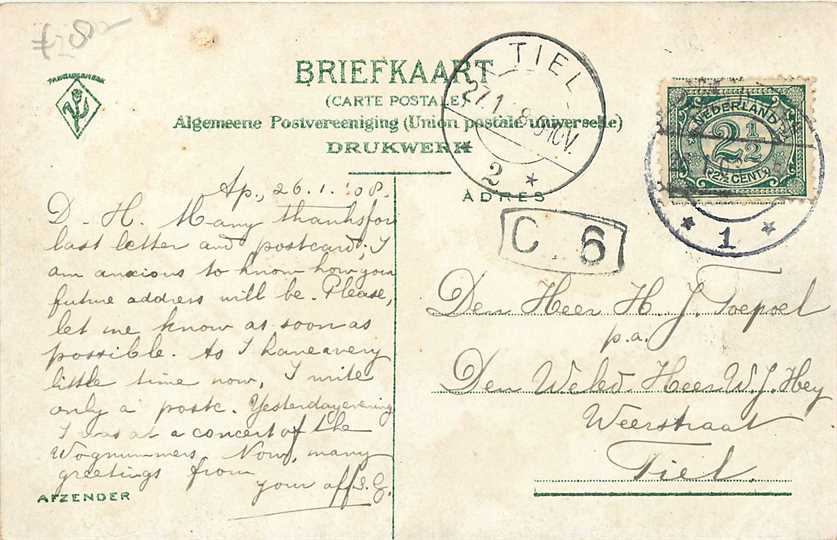 BRIEFKAART
(CARTE POSTALE)
Algemeene Postvereeniging (Union postale universelle)
DRUKWERK
TIEL
2
NEDERLAND
2½
2½ CENT
1
ADRES
C 6
Ap., 26.1.'08.
D. H. Many thanks for
last letter and postcard; I
am anxious to know how your
future address will be. Please,
let me know as soon as
possible. As I have a very
little time now, I write
only a postc. Yesterdayevening
I was at a concert of the
Wognummers. Now, many
greetings from
your aff. S. G.
AFZENDER
Den Heer H. J. Toepoel
p.a.
Den Weled. Heer W. J. Hey
Weerstraat
Tiel.